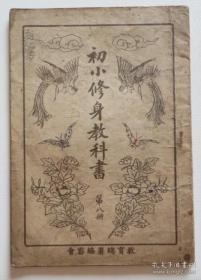 初小修身教科書
第八冊
教育總署編審會